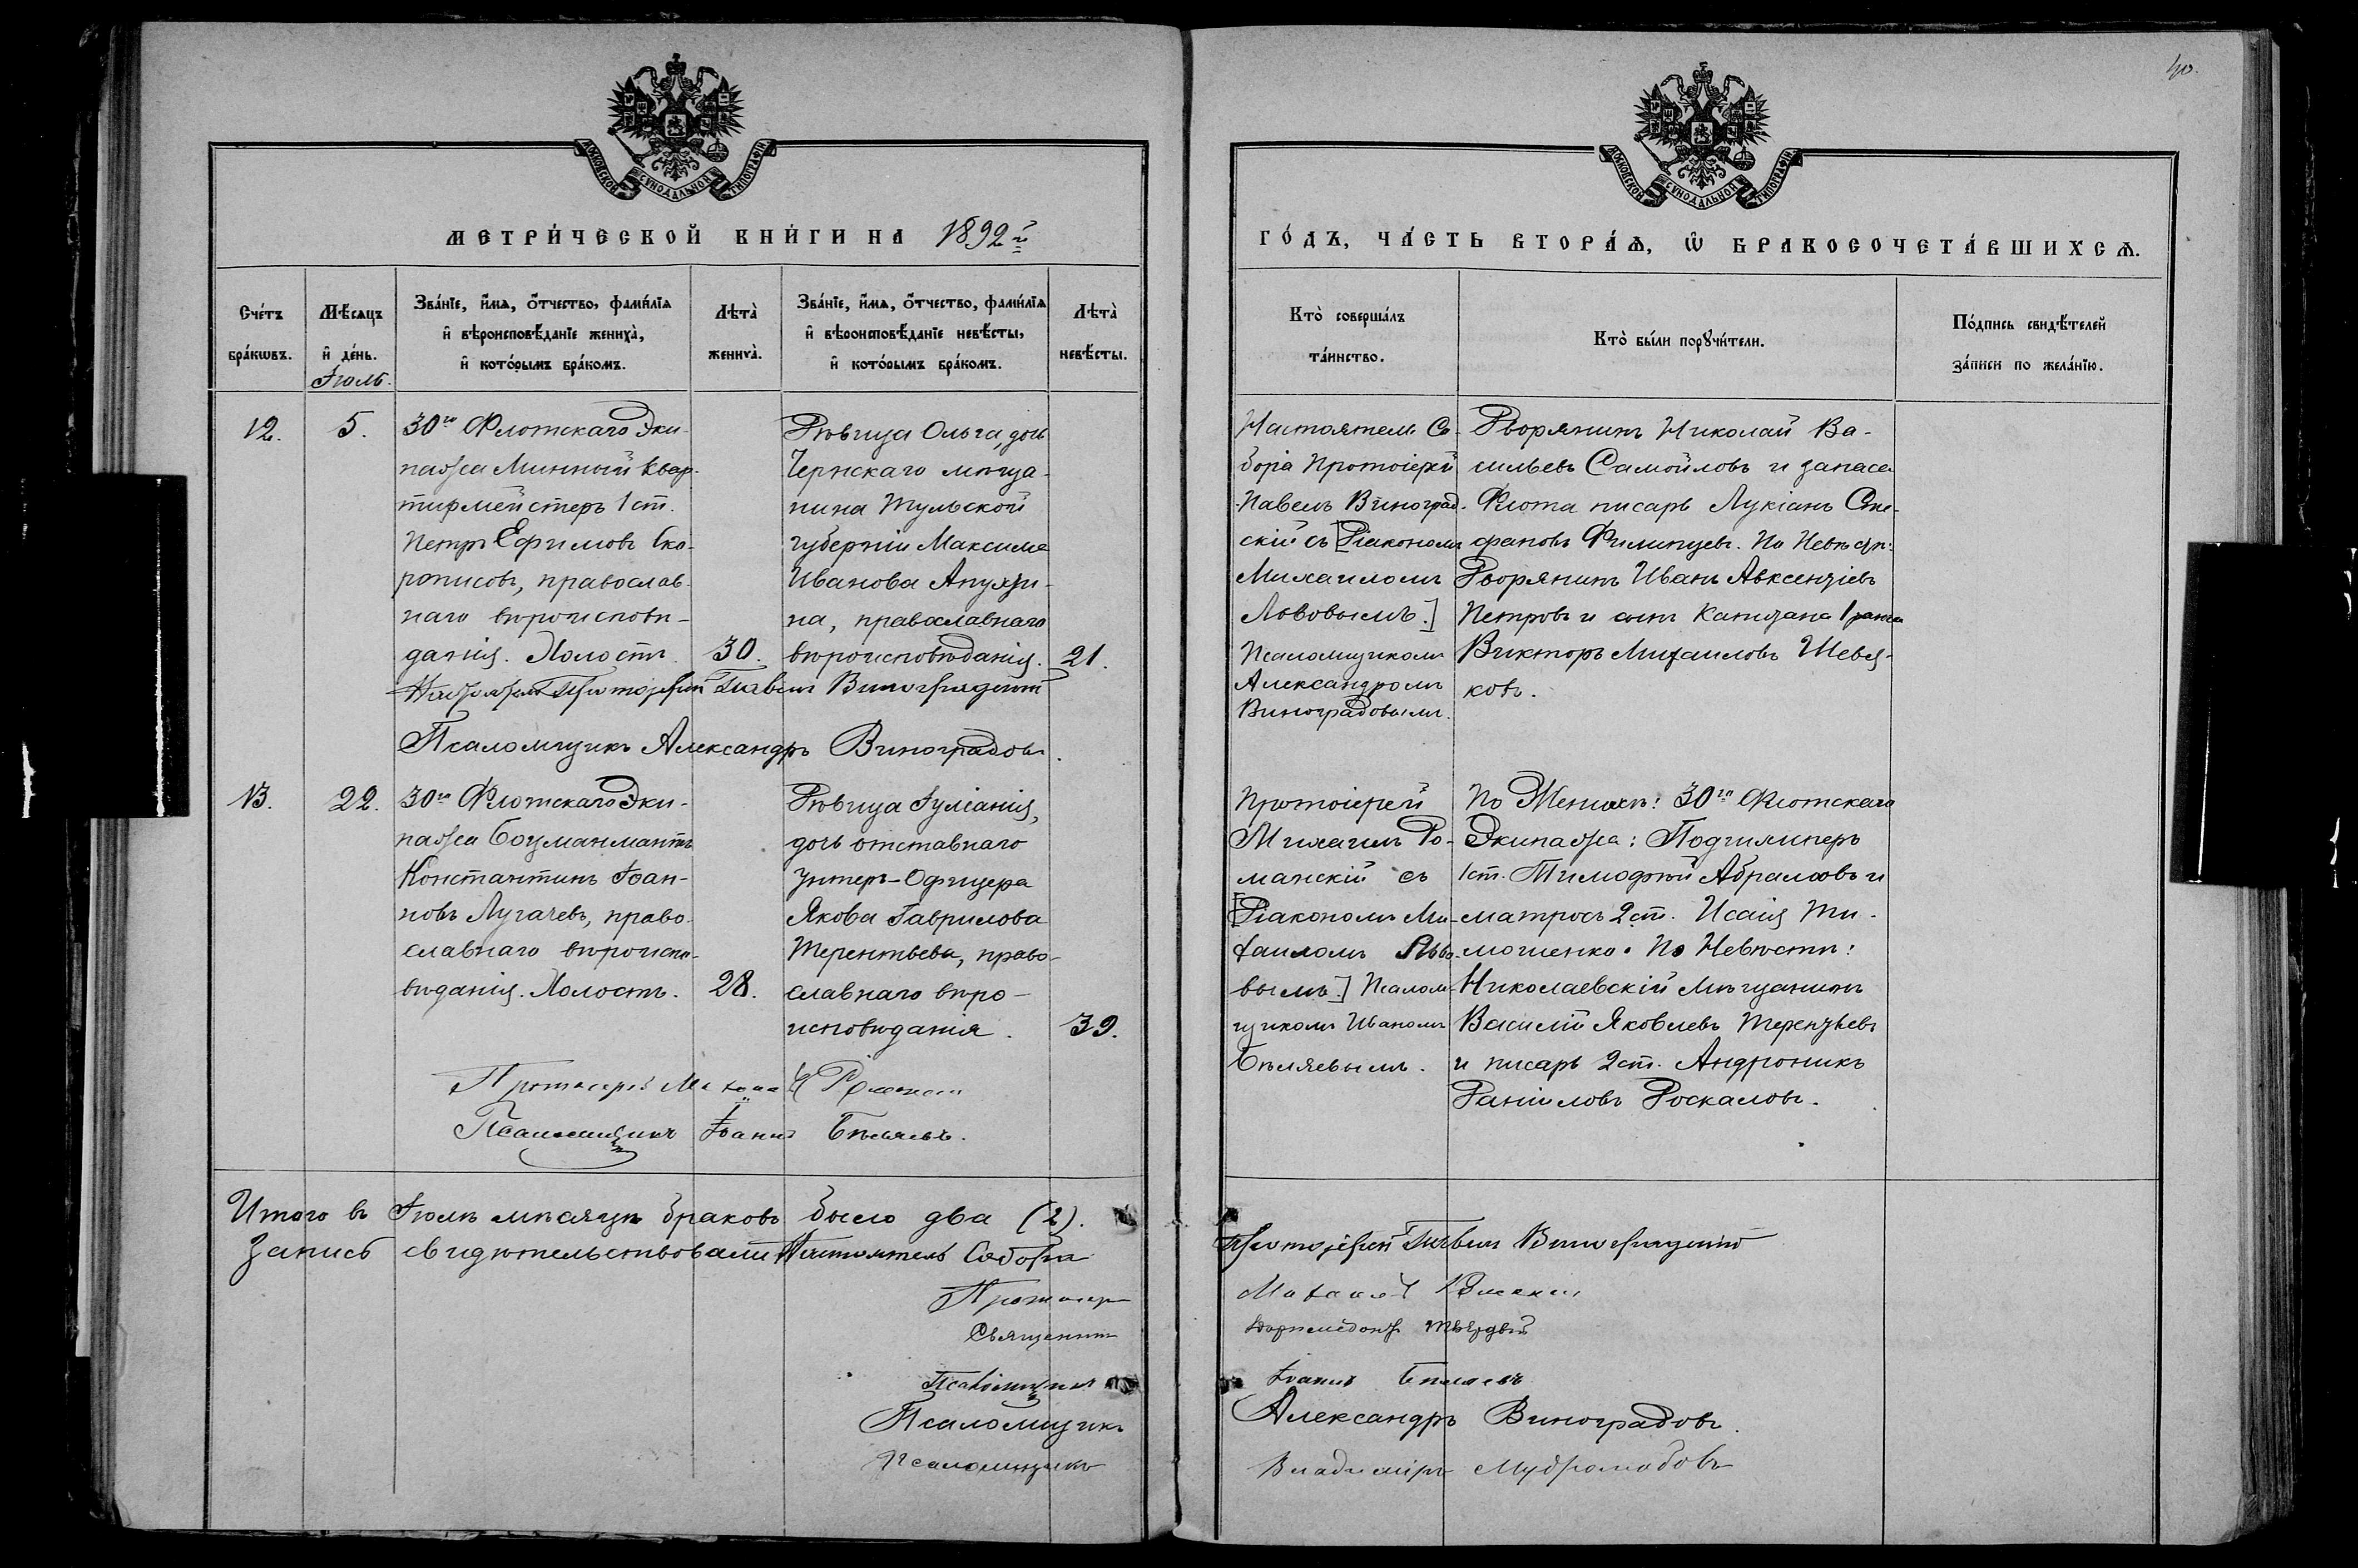 40.
МОСКОВСКОЙ СѴНОДАЛЬНОЙ ТИПОГРАФІИ
МОСКОВСКОЙ СѴНОДАЛЬНОЙ ТИПОГРАФІИ
МЕТРИ́ЧЕСКОЙ КНИ́ГИ НА 1892й
ГО́ДЪ, ЧА́СТЬ ВТОРА́Ѧ, Ѡ҆ БРАКОСОЧЕТА́ВШИХСѦ.
Сче́тъ
бра́кѡвъ.
Мѣ́сѧцъ
и҆ де́нь.
Іюль.
Зва́нїе, и҆́мѧ, ѻ҆́тчество, фами́лїѧ
и҆ вѣроисповѣ́данїе жениха̀,
и҆ кото́рымъ бра́комъ.
Лѣта̀
жениха̀.
Зва́нїе, и҆́мѧ, ѻ҆́тчество, фами́лїѧ
и҆ вѣроисповѣ́данїе невѣ́сты,
и҆ кото́рымъ бра́комъ.
Лѣта̀
невѣ́сты.
Кто̀ соверша́лъ
та́инство.
Кто̀ бы́ли порꙋчи́тели.
По́дпись свидѣ́телей
за́писи по жела́нїю.
12.
5.
30го Флотскаго Эки-
пажа Минный Квар-
тирмейстеръ 1 ст.
Петръ Ефимовъ Ско-
рописовъ, православ-
наго вѣроисповѣ-
данія. Холостъ.
30.
Дѣвица Ольга, дочь
Чернскаго мѣща-
нина Тульской
губерніи Максима
Иванова Апухти-
на, православнаго
вѣроисповѣданія.
21.
Настоятель Со-
бора Протоіерей
Павелъ Виноград-
скій съ [Діакономъ
Михаиломъ
Львовымъ.]
Псаломщикомъ
Александромъ
Виноградовымъ.
Дворянинъ Николай Ва-
сильевъ Самойловъ и запаса
Флота писарь Лукіанъ Сте-
фановъ Филипцевъ. По Невѣстѣ:
Дворянинъ Иванъ Авксентіевъ
Петровъ и сынъ Капитана 1 ранга
Викторъ Михаиловъ Шевя-
ковъ.
Настоятель Протоіерей Павелъ Виноградскій
Псаломщикъ Александръ Виноградовъ.
13.
22.
30го Флотскаго Эки-
пажа Боцманматъ
Константинъ Іоан-
новъ Лугачевъ, право-
славнаго вѣроиспо-
вѣданія. Холостъ.
28.
Дѣвица Іуліанія,
дочь отставнаго
Унтеръ-Офицера
Якова Гаврилова
Терентьева, право-
славнаго вѣро-
исповѣданія.
39.
Протоіерей
Михаилъ Ро-
манскій съ
[Діакономъ Ми-
хаиломъ Льво-
вымъ.] Псалом-
щикомъ Иваномъ
Бѣляевымъ.
По Женихѣ: 30го Флотскаго
Экипажа: Подшкиперъ
1 ст. Тимофѣй Абрамовъ и
матросъ 2 ст. Исаія Ти-
мошенко. По Невѣстѣ:
Николаевскій Мѣщанинъ
Василій Яковлевъ Терентьевъ
и писарь 2 ст. Андроникъ
Даніиловъ Доскаловъ.
Протоіерей Михаилъ Романскій
Псаломщикъ Іоаннъ Бѣляевъ.
Итого въ Іюлѣ мѣсяцѣ браковъ было два (2).
Запись свидѣтельствовали Настоятель Собора
Протоіерей Павелъ Виноградскій
Протоіерей
Михаилъ Романскій
Священникъ
Твердый
Псаломщикъ
Іоаннъ Бѣляевъ
Псаломщикъ
Александръ Виноградовъ.
Псаломщикъ
Владиміръ